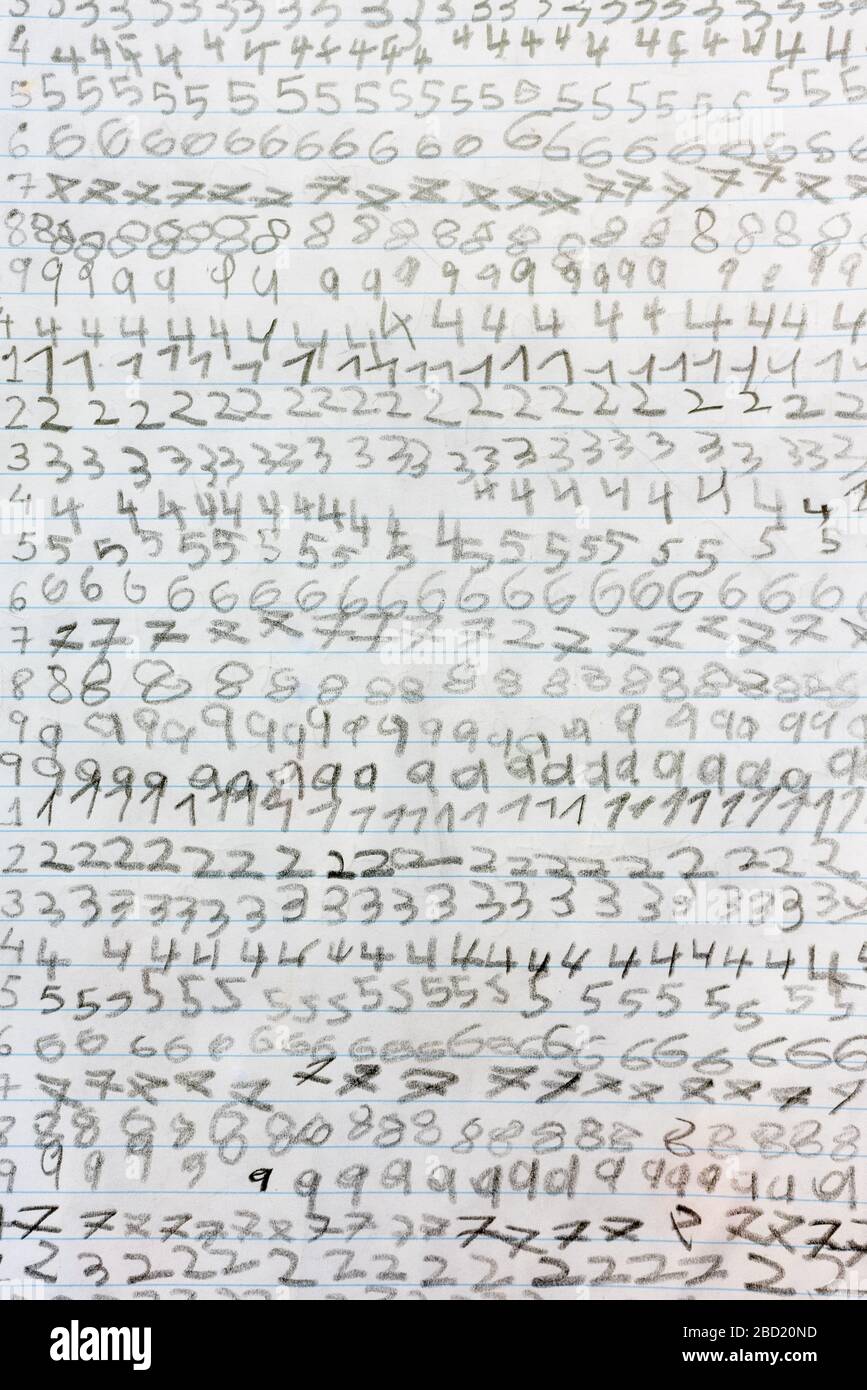 3 3 3 3 3 3 3 3 3 3 3 3 3 3 3 3 3 3 3 3
4 4 4 4 4 4 4 4 4 4 4 4 4 4 4 4 4 4 4 4 4 4 4 4
5 5 5 5 5 5 5 5 5 5 5 5 5 5 5 5 5 5 5 5 5 5 5 5 5
6 6 6 6 6 6 6 6 6 6 6 6 6 6 6 6 6 6 6 6 6 8 6 6
7 7 7 7 7 7 7 7 7 7 7 7 7 7 7 7 7 7 7 7 7
8 8 8 8 8 8 8 8 8 8 8 8 8 8 8 8 8 8 8 8 8 8 8
9 9 9 9 9 9 9 9 9 9 9 9 9 9 9 9 9 9 9 9 9 9
4 4 4 4 4 4 4 4 4 4 4 4 4 4 4 4 4 4 4 4 4
1 1 1 1 1 1 1 1 1 1 1 1 1 1 1 1 1 1 1 1 1 1 1 1
2 2 2 2 2 2 2 2 2 2 2 2 2 2 2 2 2 2 2 2 2 2
3 3 3 3 3 3 3 3 3 3 3 3 3 3 3 3 3 3 3 3 3 3 3 3 2
4 4 4 4 4 4 4 4 4 4 4 4 4 4 4 4 4 4 4 4 4 4 1
5 5 5 5 5 5 5 5 5 5 5 5 5 5 5 5 5 5 5 5
6 6 6 6 6 6 6 6 6 6 6 6 6 6 6 6 6 6 6 6 6 6
7 7 7 7 7 7 7 7 7 7 7 7 2 7 7 7 7 7 7 7
8 8 8 8 8 8 8 8 8 8 8 8 8 8 8 8 8 8 8 8
9 9 9 9 9 9 9 9 9 9 9 9 9 9 9 9 9 9 9 9 9 9 9
9 9 9 9 9 9 9 9 9 9 9 9 9 9 9 9 9 9 9 9 9 9
1 1 1 1 1 1 1 1 1 1 1 1 1 1 1 1 1 1 1 1 1 1 1 1 1
2 2 2 2 2 2 2 2 2 2 2 2 2 2 3 2 2 2 2 2 2 2
3 3 3 3 3 3 3 3 3 3 3 3 3 3 3 3 3 3 3 3 3 3
4 4 4 4 4 4 4 4 4 4 4 4 4 4 4 4 4 4 4 4 4 4
5 5 5 5 5 5 5 5 5 5 5 5 5 5 5 5 5 5 5 5 5 5 5
6 6 6 6 6 6 6 6 6 6 6 6 6 6 6 6 6 6 6 6 6 6
7 7 7 7 7 7 7 7 7 7 7 7 7 7 7 7 7 7
8 8 8 8 8 8 8 8 8 8 8 8 8 8 8 8 8 8 8 8 8 8
9 9 9 9 9 9 9 9 9 9 9 9 9 9 9 9 9 9 9 9 9 9
7 7 7 7 7 7 7 7 7 7 7 7 7 7 7 7 7 7 7 7
2 2 3 2 2 2 2 2 2 2 2 2 2 2 2 2 2 2
alamy
Image ID: 2BD20ND
www.alamy.com